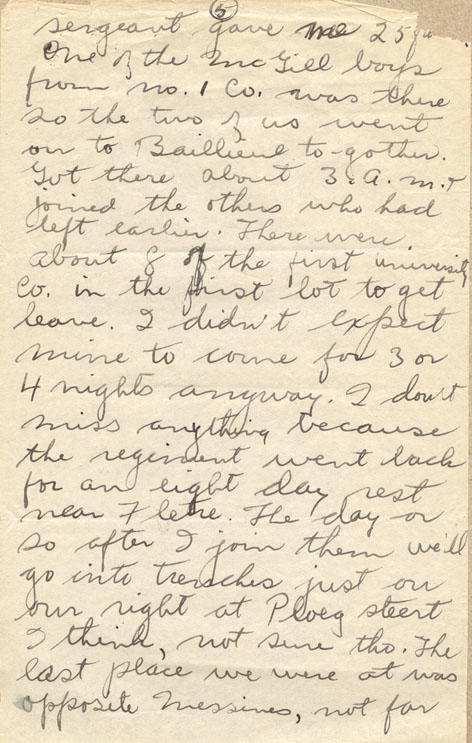 5
sergeant gave me 25 fr
One of the McGill boys
from no. 1 Co. was there
so the two of us went
on to Baillieul to-gother.
Got there about 3. A.m. &
joined the others who had
left earlier. There were
about 8 of the first university
Co. in the first lot to get
leave. I didn't expect
mine to come for 3 or
4 nights anyway. I don't
miss anything because
the regiment went back
for an eight day rest
near Fletre. The day or
so after I join them we'll
go into trenches just on
our right at Ploeg steert
I think, not sure tho. The
last place we were at was
opposite Messines, not far